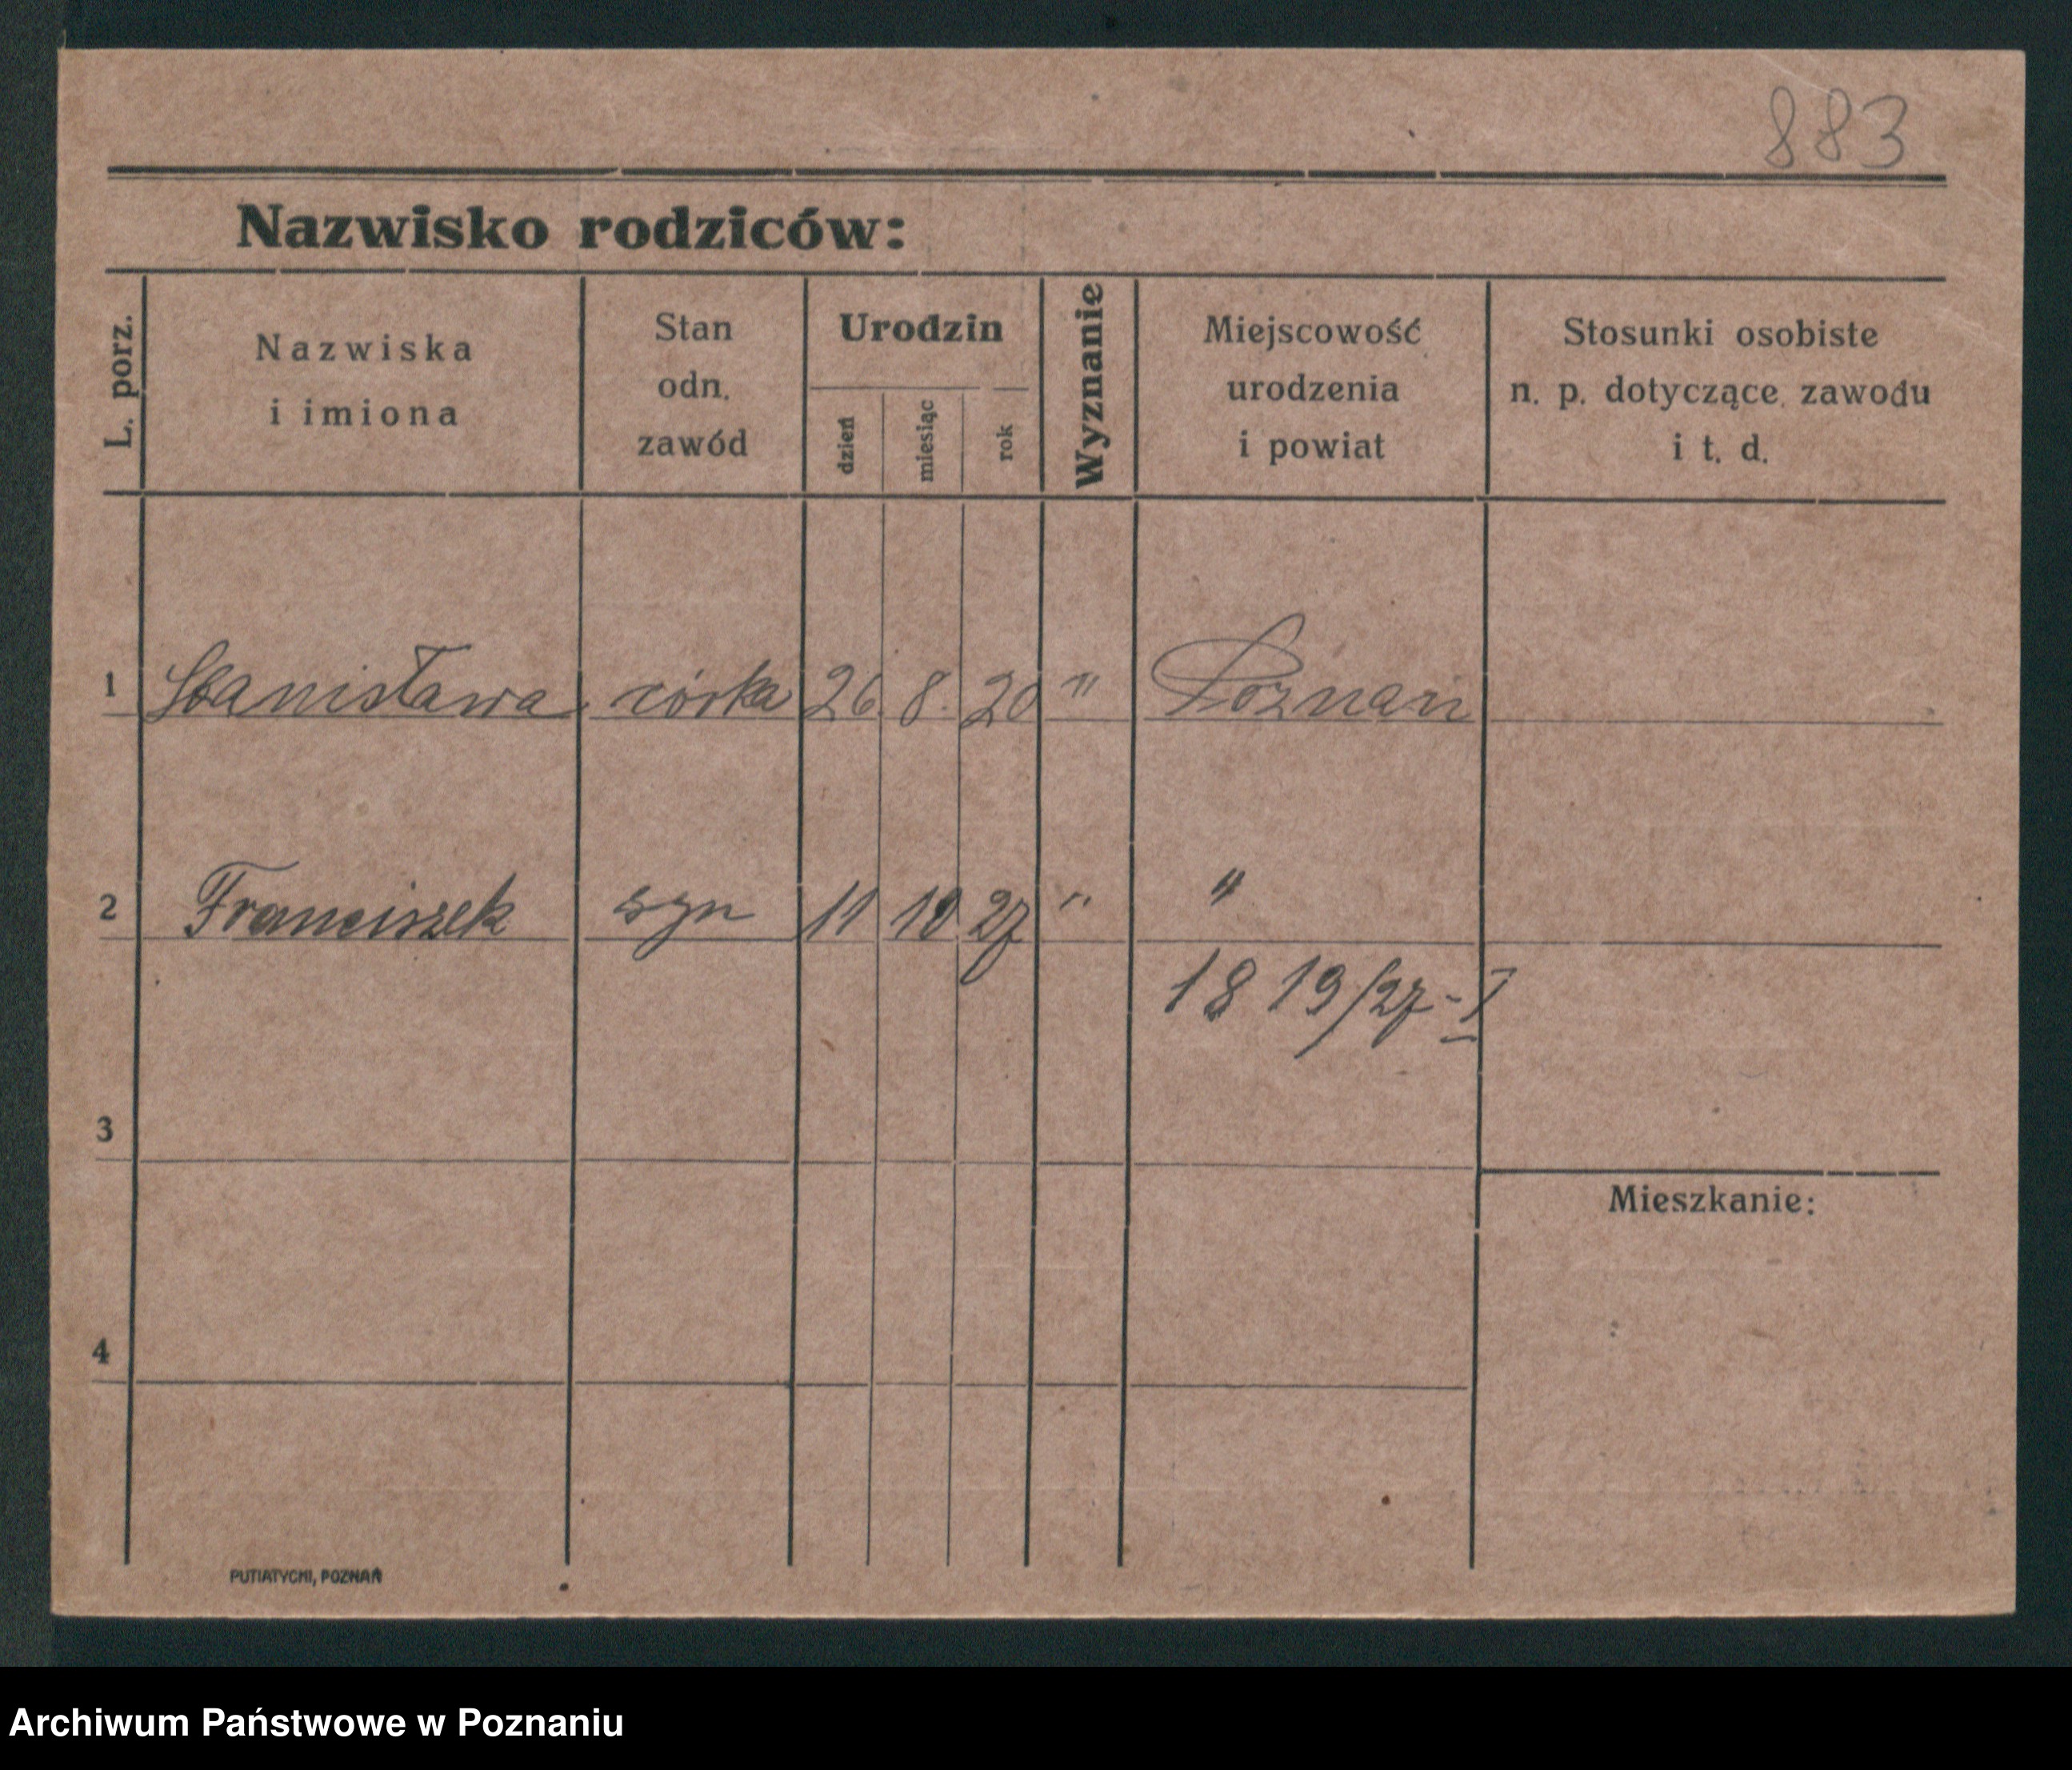 883
Nazwisko rodziców:
L. porz.
Nazwiska
i imiona
Stan
odn.
zawód
Urodzin
dzień
miesiąc
rok
Wyznanie
Miejscowość
urodzenia
i powiat
Stosunki osobiste
n. p. dotyczące zawodu
i t. d.
1 Stanisława córka 26 8. 20 " Poznań
2 Franciszek syn 11 10 27 " "
1819/27-I
3
Mieszkanie:
4
PUTIATYCKI, POZNAŃ
Archiwum Państwowe w Poznaniu